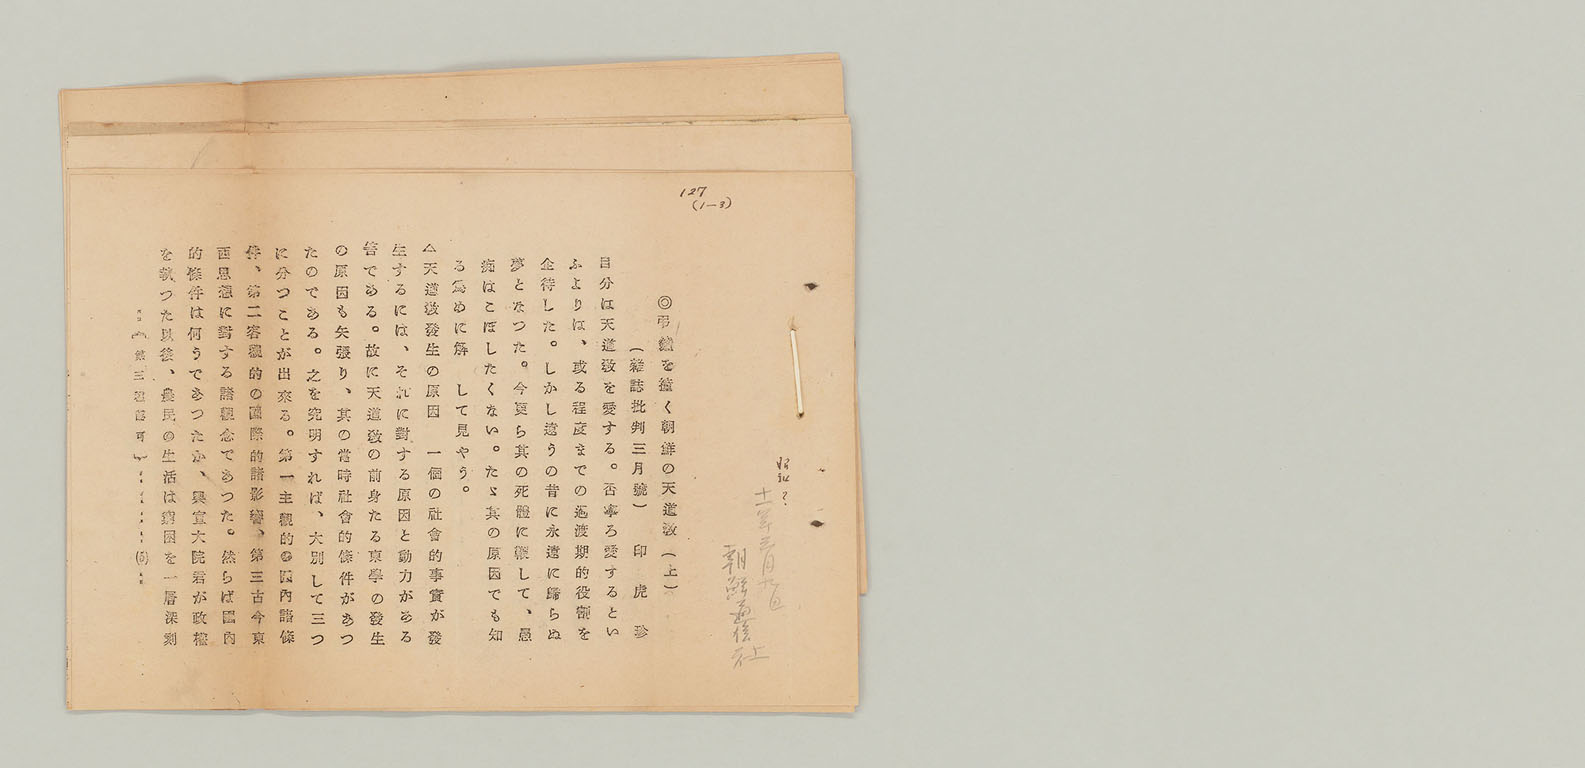 127
(1-3)
昭和?
十一年三月九日
朝鮮通信社
◎弔鐘を撞く朝鮮の天道教(上)
(雜誌批判三月號) 印虎珍
自分は天道教を愛する。否寧ろ愛するとい
ふよりは、或る程度までの過渡期的役割を
企待した。しかし遠うの昔に永遠に歸らぬ
夢となつた。今更ら其の死體に鞭して、愚
痴はこぼしたくない。たゞ其の原因でも知
る爲めに解 して見やう。
△天道教發生の原因 一個の社會的事實が發
生するには、それに對する原因と動力がある
筈である。故に天道教の前身たる東學の發生
の原因も矢張り、其の當時社會的條件があつ
たのである。之を究明すれば、大別して三つ
に分つことが出來る。第一主觀的の國內諸條
件、第二客觀的の國際的諸影響、第三古今東
西思想に對する諸觀念であつた。然らば國內
的條件は何うであつたか、興宣大院君が政權
を執つた以後、農民の生活は窮困を一層深刻
第三種認可
(5)